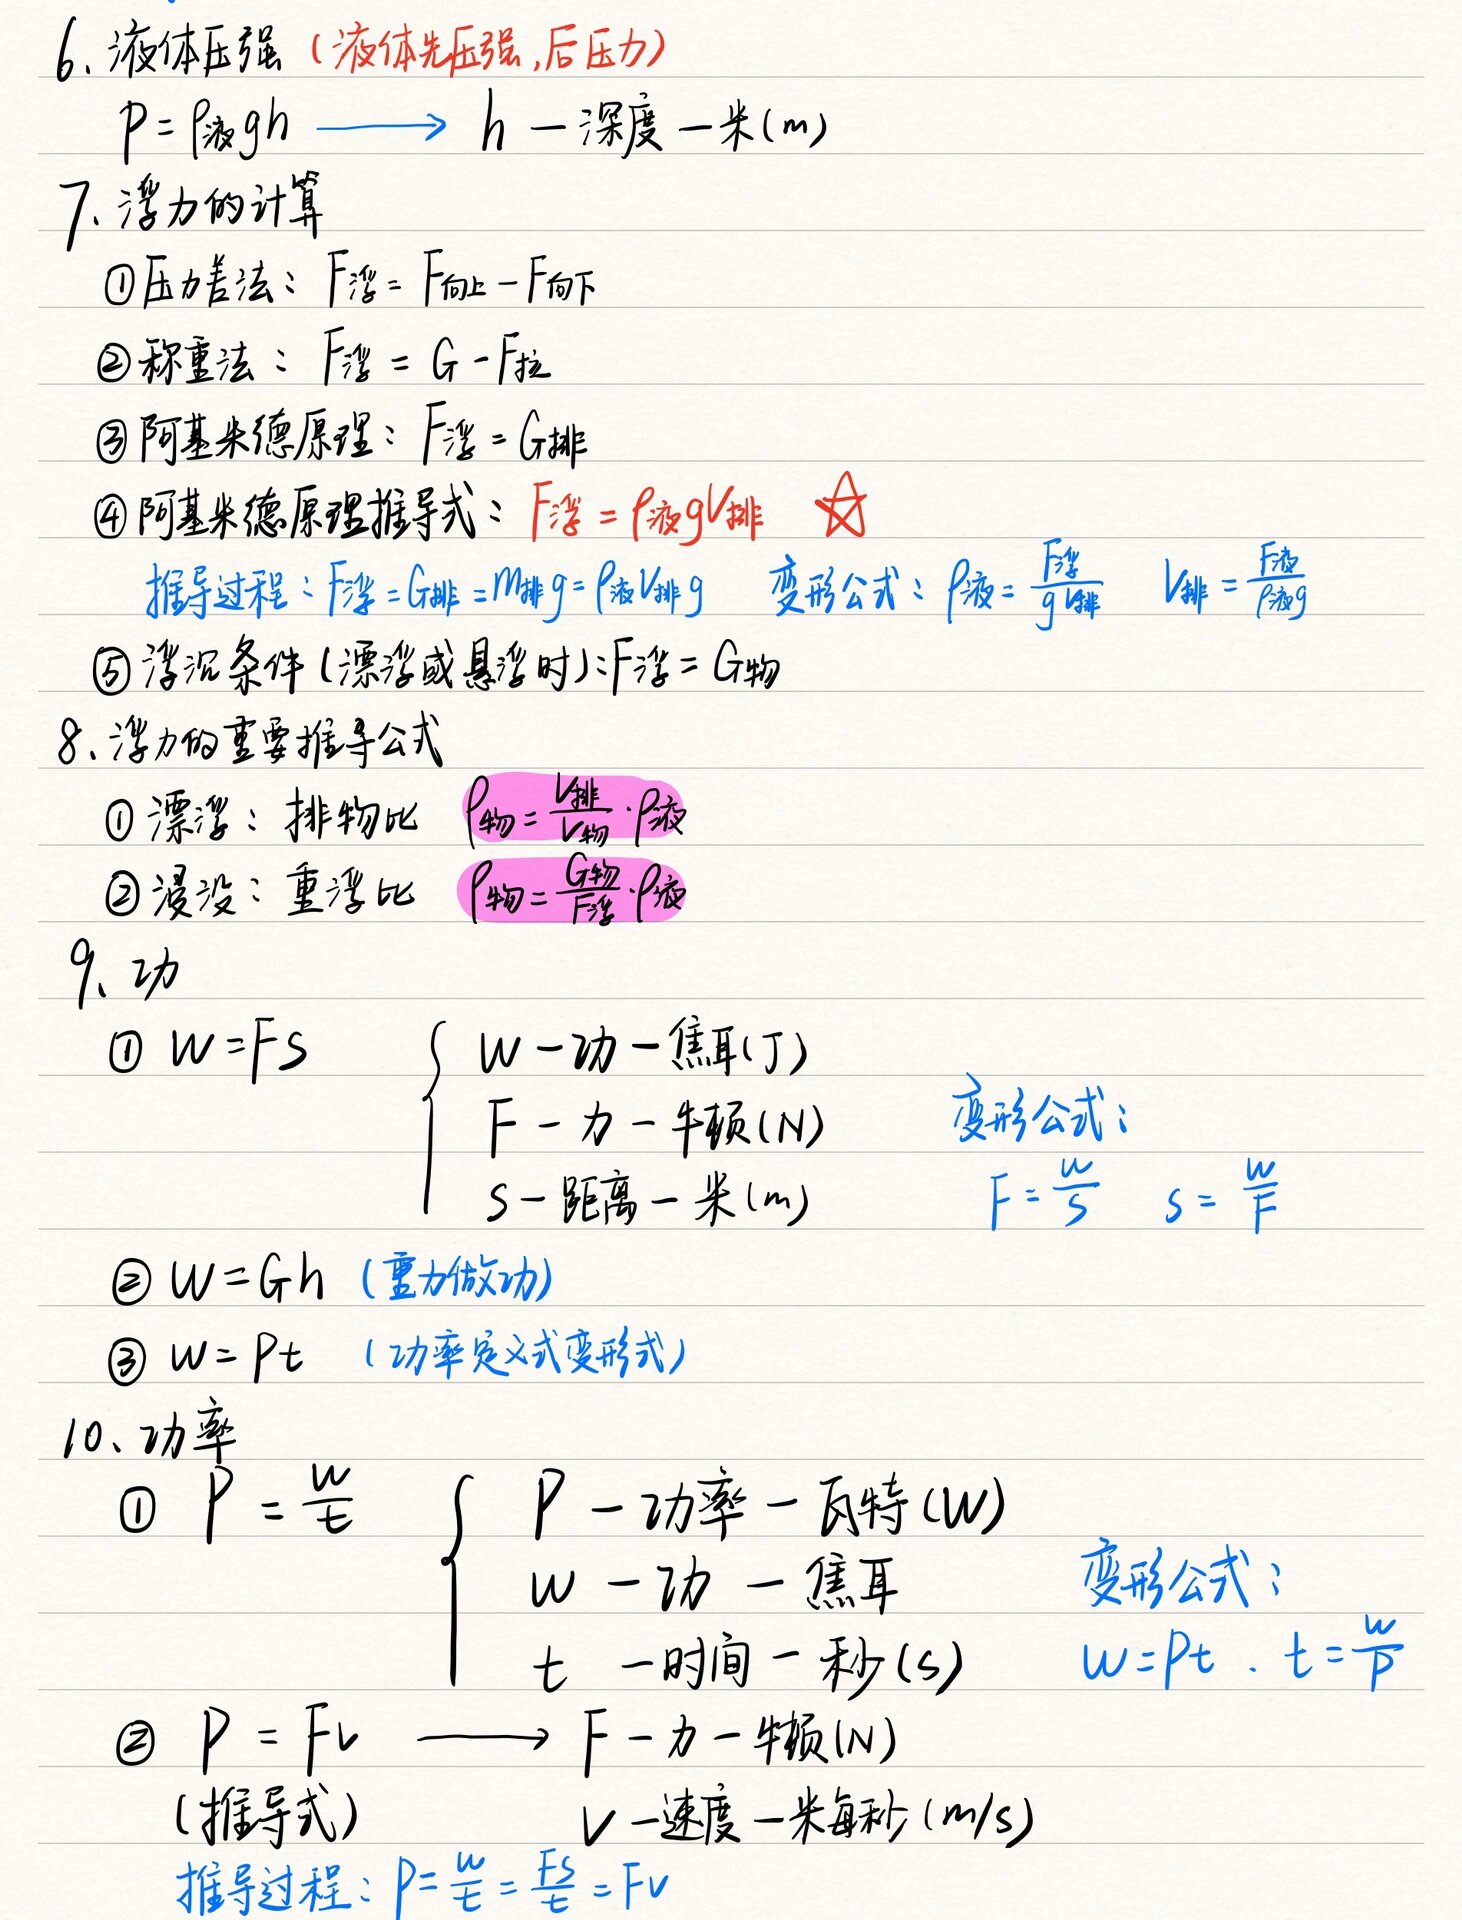 6、液体压强（液体先压强,后压力）
P=ρ液gh ⟶ h—深度—米(m)
7、浮力的计算
①压力差法：F浮=F向上-F向下
②称重法：F浮=G-F拉
③阿基米德原理：F浮=G排
④阿基米德原理推导式：F浮=ρ液gV排 ☆
推导过程：F浮=G排=m排g=ρ液V排g 变形公式：ρ液=F浮/gV排 V排=F液/ρ液g
⑤浮沉条件(漂浮或悬浮时):F浮=G物
8、浮力的重要推导公式
①漂浮：排物比 ρ物=V排/V物·ρ液
②浸没：重浮比 ρ物=G物/F浮·ρ液
9、功
①W=Fs { W—功—焦耳(J)
F—力—牛顿(N) 变形公式：
s—距离—米(m) F=W/S s=W/F
②W=Gh (重力做功)
③W=Pt (功率定义式变形式)
10、功率
①P=W/t { P—功率—瓦特(W)
W—功—焦耳 变形公式：
t—时间—秒(s) W=Pt . t=W/P
②P=Fv ⟶ F—力—牛顿(N)
(推导式) V—速度—米每秒(m/s)
推导过程：P=W/t=FS/t=Fv